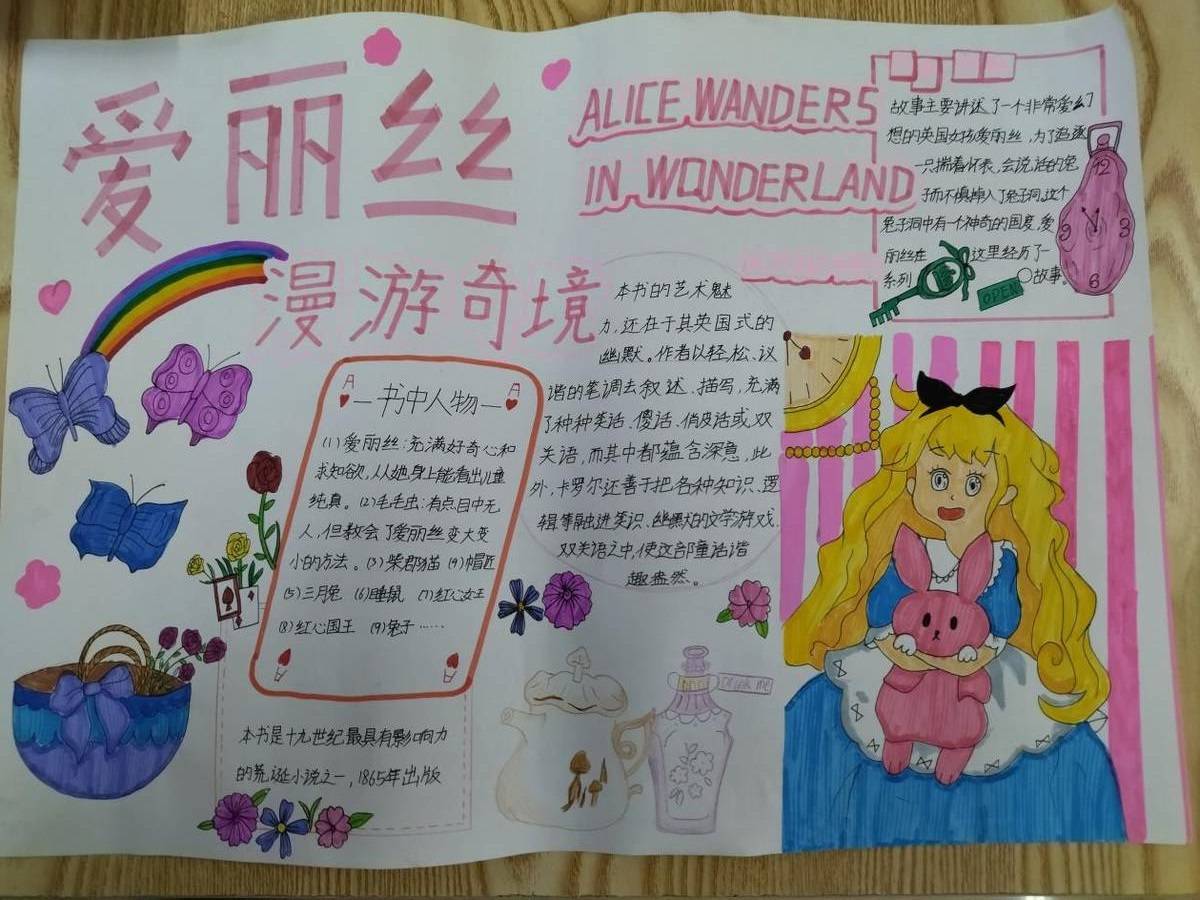 爱丽丝
漫游奇境
ALICE WANDERS
IN WONDERLAND
故事主要讲述了一个非常爱幻
想的英国女孩爱丽丝,为了追逐
一只揣着怀表,会说话的兔
子而不慎掉入了兔子洞,这个
兔子洞中有一个神奇的国度,爱
丽丝在这里经历了一
系列故事。
OPEN
12
3
6
9
本书的艺术魅
力,还在于其英国式的
幽默。作者以轻松、诙
谐的笔调去叙述、描写,充满
了种种笑话、傻话、俏皮话或双
关语,而其中都蕴含深意,此
外,卡罗尔还善于把各种知识、逻
辑等融进笑识、幽默的文学游戏、
双关语之中,使这部童话谐
趣盎然。
A
A
书中人物
(1)爱丽丝:充满好奇心和
求知欲,从她身上能看出儿童
纯真。(2)毛毛虫:有点目中无
人,但教会了爱丽丝变大变
小的方法。(3)柴郡猫 (4)帽匠
(5)三月兔 (6)睡鼠 (7)红心女王
(8)红心国王 (9)兔子……
本书是十九世纪最具有影响力
的荒诞小说之一,1865年出版
DRINK ME